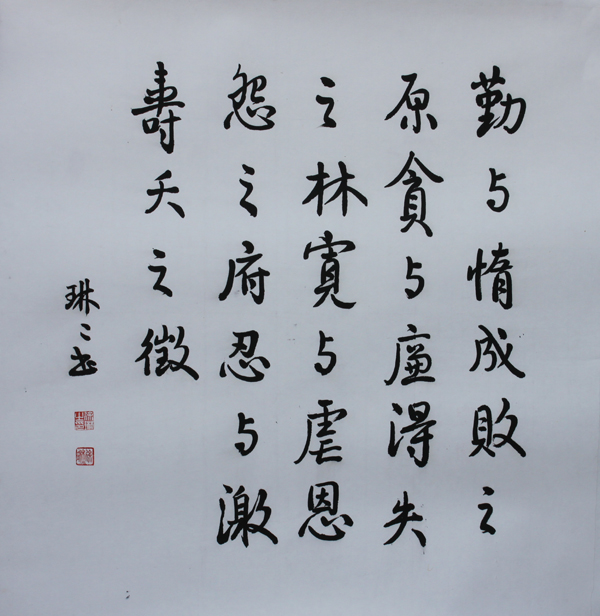 勤与惰成敗之
原貪与廉得失
之林寬与虐恩
怨之府忍与激
壽夭之徵
琳〻书